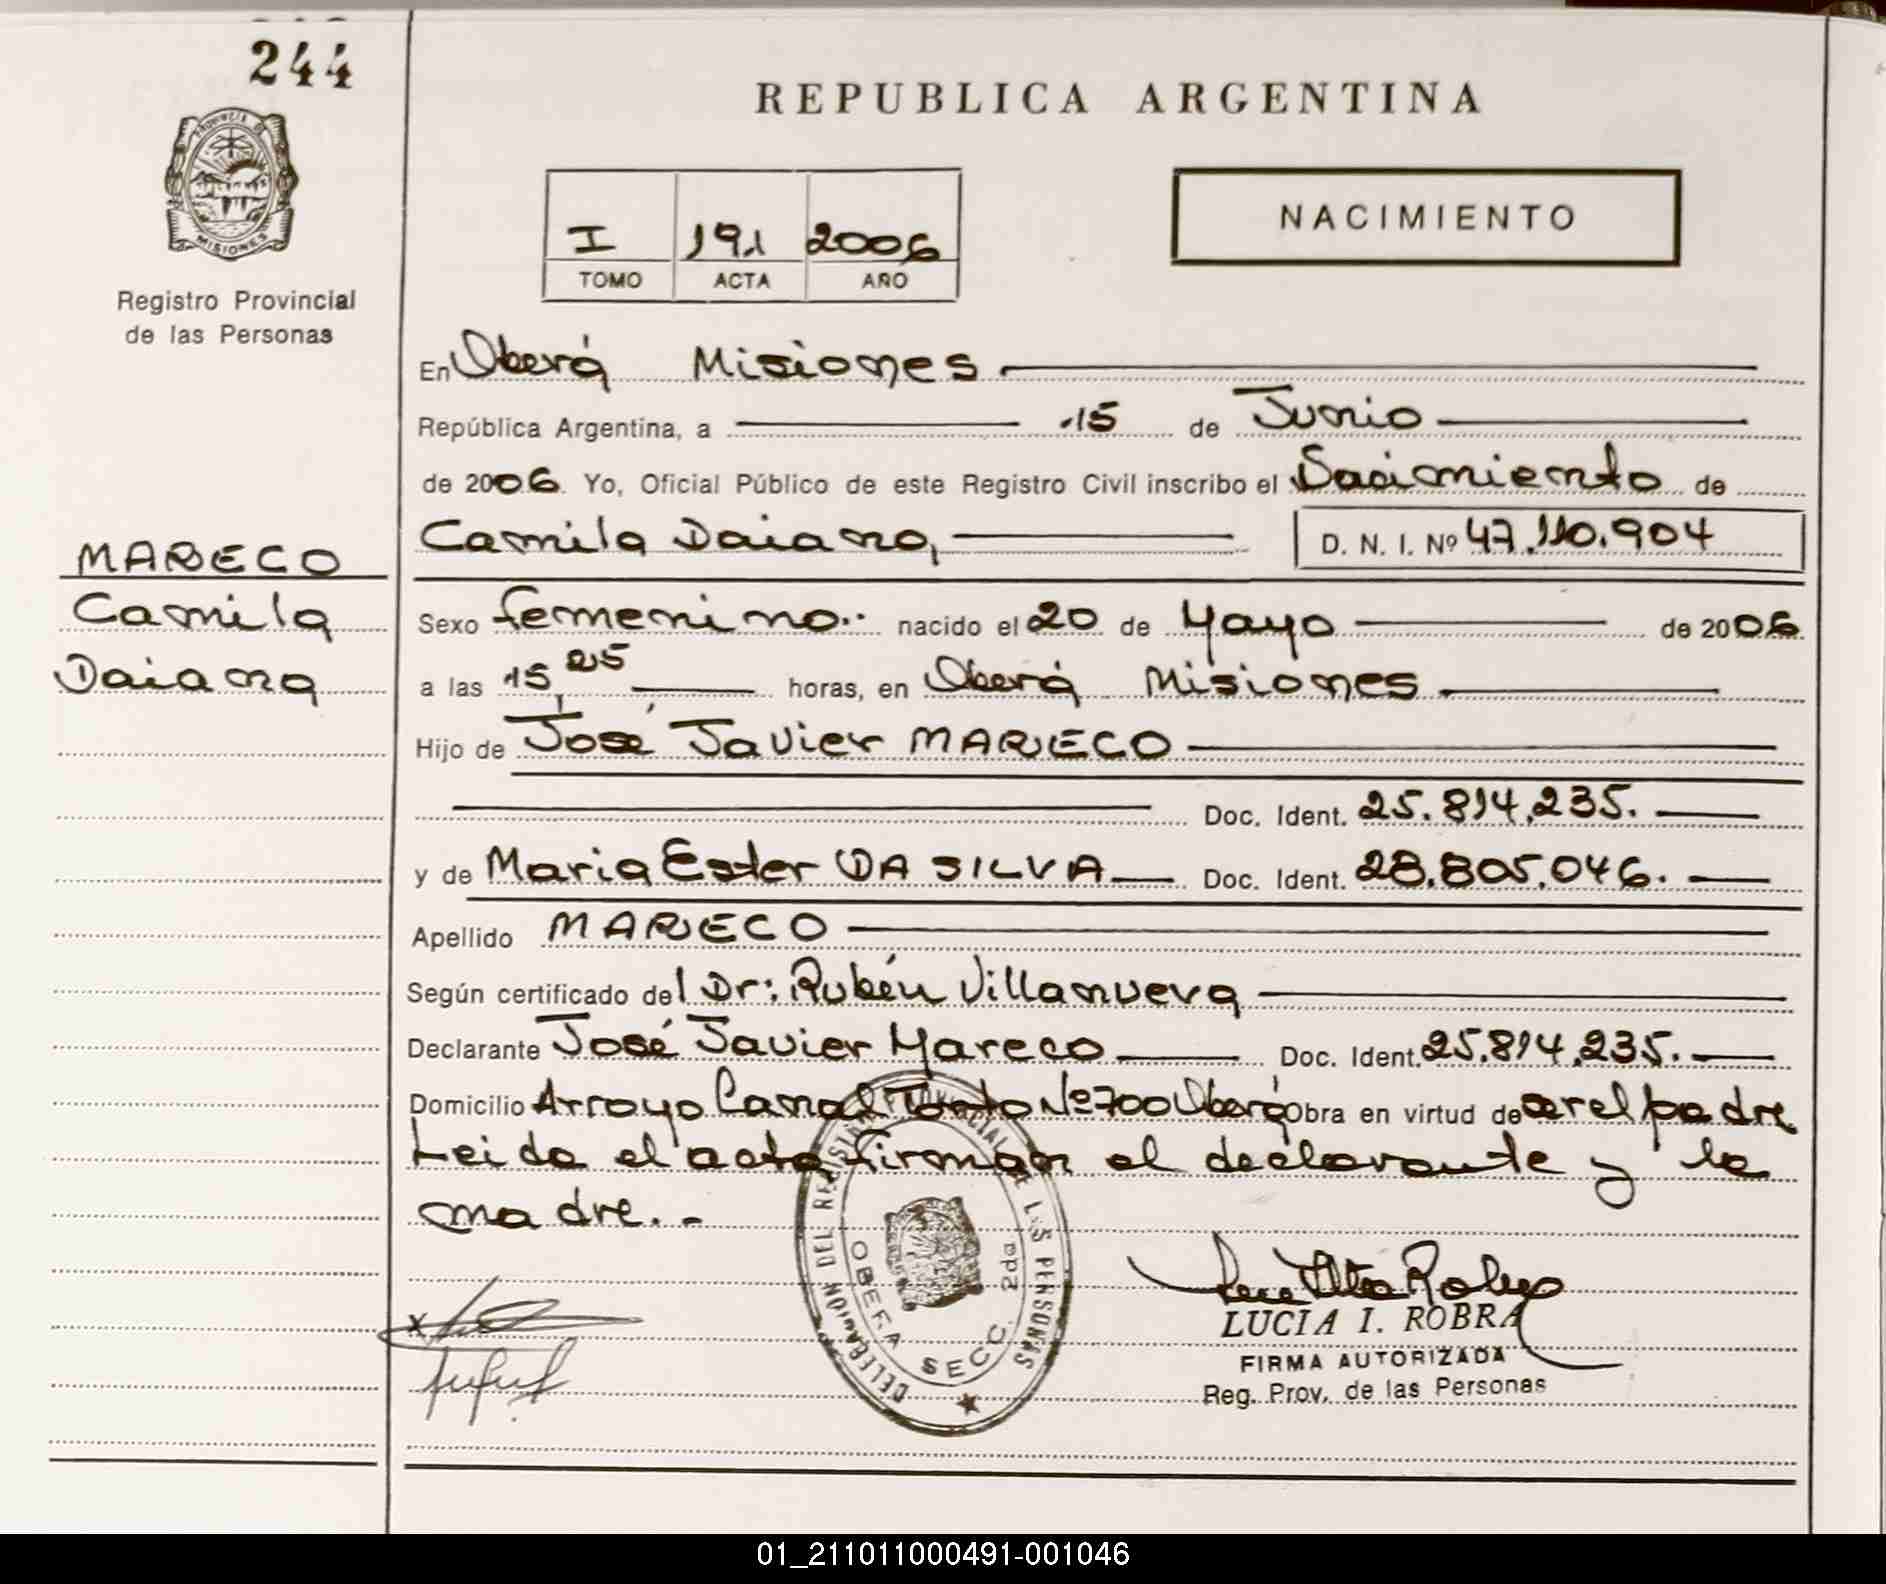 244
PROVINCIA DE
MISIONES
Registro Provincial
de las Personas
REPUBLICA ARGENTINA
I 191 2006
TOMO ACTA AÑO
NACIMIENTO
En Oberá Misiones
República Argentina, a 15 de Junio
de 2006. Yo, Oficial Público de este Registro Civil inscribo el Nacimiento de
Camila Daiana, D. N. I. Nº 47.110.904
MARECO
Camila
Daiana
Sexo femenino.. nacido el 20 de Mayo de 2006.
a las 15,25 horas, en Oberá Misiones
Hijo de José Javier MARECO
Doc. Ident. 25.814.235.
y de Maria Ester DA SILVA Doc. Ident. 28.805.046.
Apellido MARECO
Según certificado del Dr: Rubén Villanueva
Declarante José Javier Mareco Doc. Ident. 25.814.235.
Domicilio Arroyo Canal Tonto Nº 700 Oberá Obra en virtud de ser el padre
Leida el acta firman el declarante y la
madre.-
DELEGACION DEL REGISTRO PROVINCIAL DE LAS PERSONAS
OBERA SECC. 2da
LUCIA I. ROBRA
FIRMA AUTORIZADA
Reg. Prov. de las Personas
01_211011000491-001046